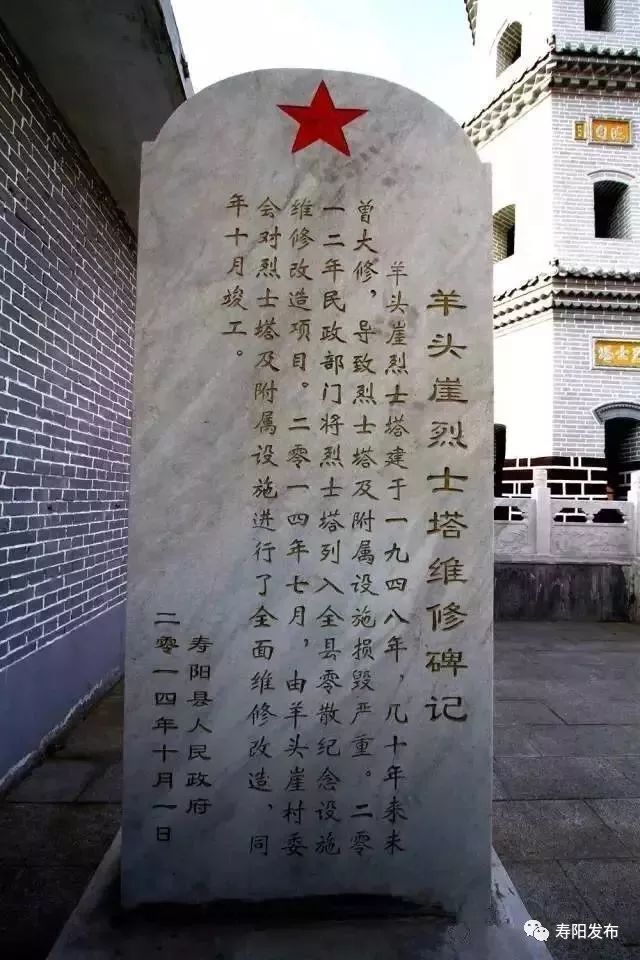 羊头崖烈士塔维修碑记
羊头崖烈士塔建于一九四八年，几十年来未
曾大修，导致烈士塔及附属设施损毁严重。二零
一二年民政部门将烈士塔列入全县零散纪念设施
维修改造项目。二零一四年七月，由羊头崖村委
会对烈士塔及附属设施进行了全面维修改造，同
年十月竣工。
寿阳县人民政府
二零一四年十月一日
烈士塔
寿阳发布